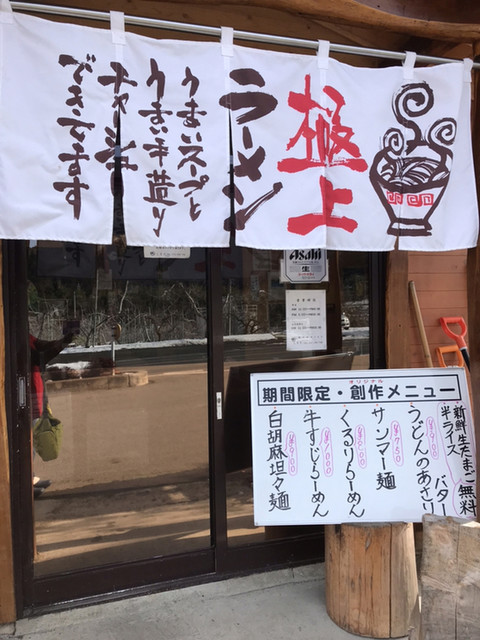 極上
ラーメン
うまいスープと
うまい手造り
チャーシュー
できてます
Asahi
生
営業時間
オリジナル
期間限定・創作メニュー
新鮮生たまご無料
半ライス
バター
うどんのあさり
サンマー麺
¥750
くるりらーめん
牛すじらーめん
¥1000
白胡麻坦々麺
¥900